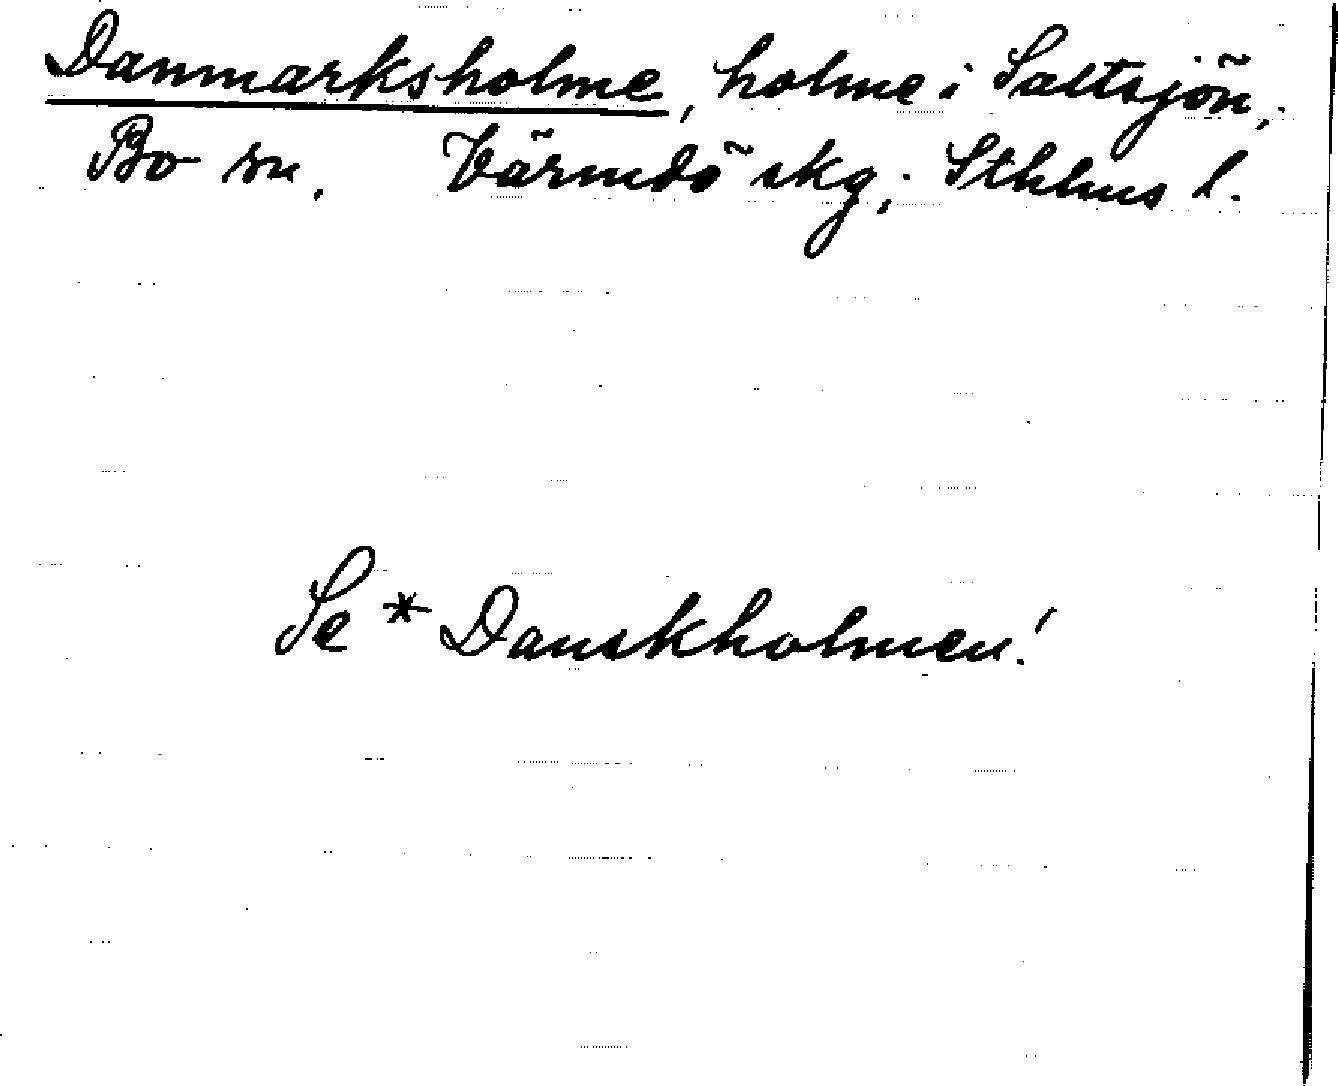 Danmarksholme, holme i Saltsjön,
Bo sn. Värmdö skg, Sthlms l.
Se * Danskholmen!